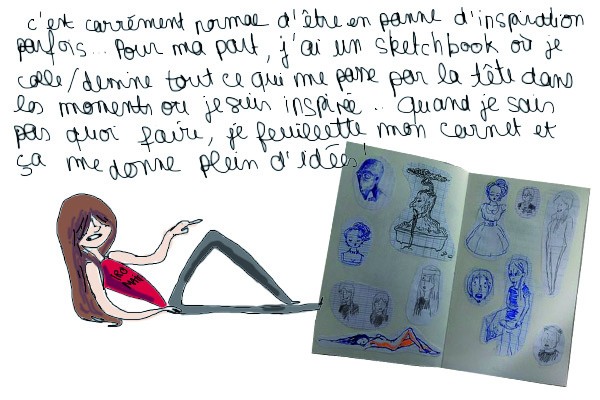 c'est carrément normal d'être en panne d'inspiration
parfois... Pour ma part, j'ai un sketchbook où je
colle/dessine tout ce qui me passe par la tête dans
les moments où je suis inspirée.. Quand je sais
pas quoi faire, je feuillette mon carnet et
ça me donne plein d'idées!